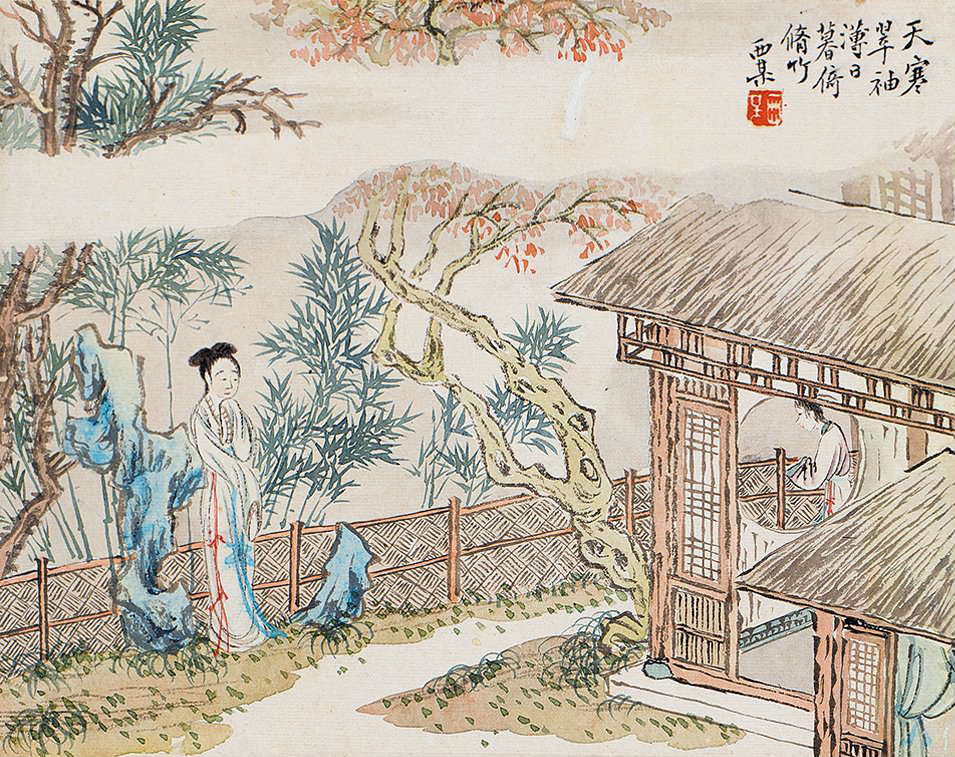 天寒
翠袖
薄日
暮倚
脩竹
西某